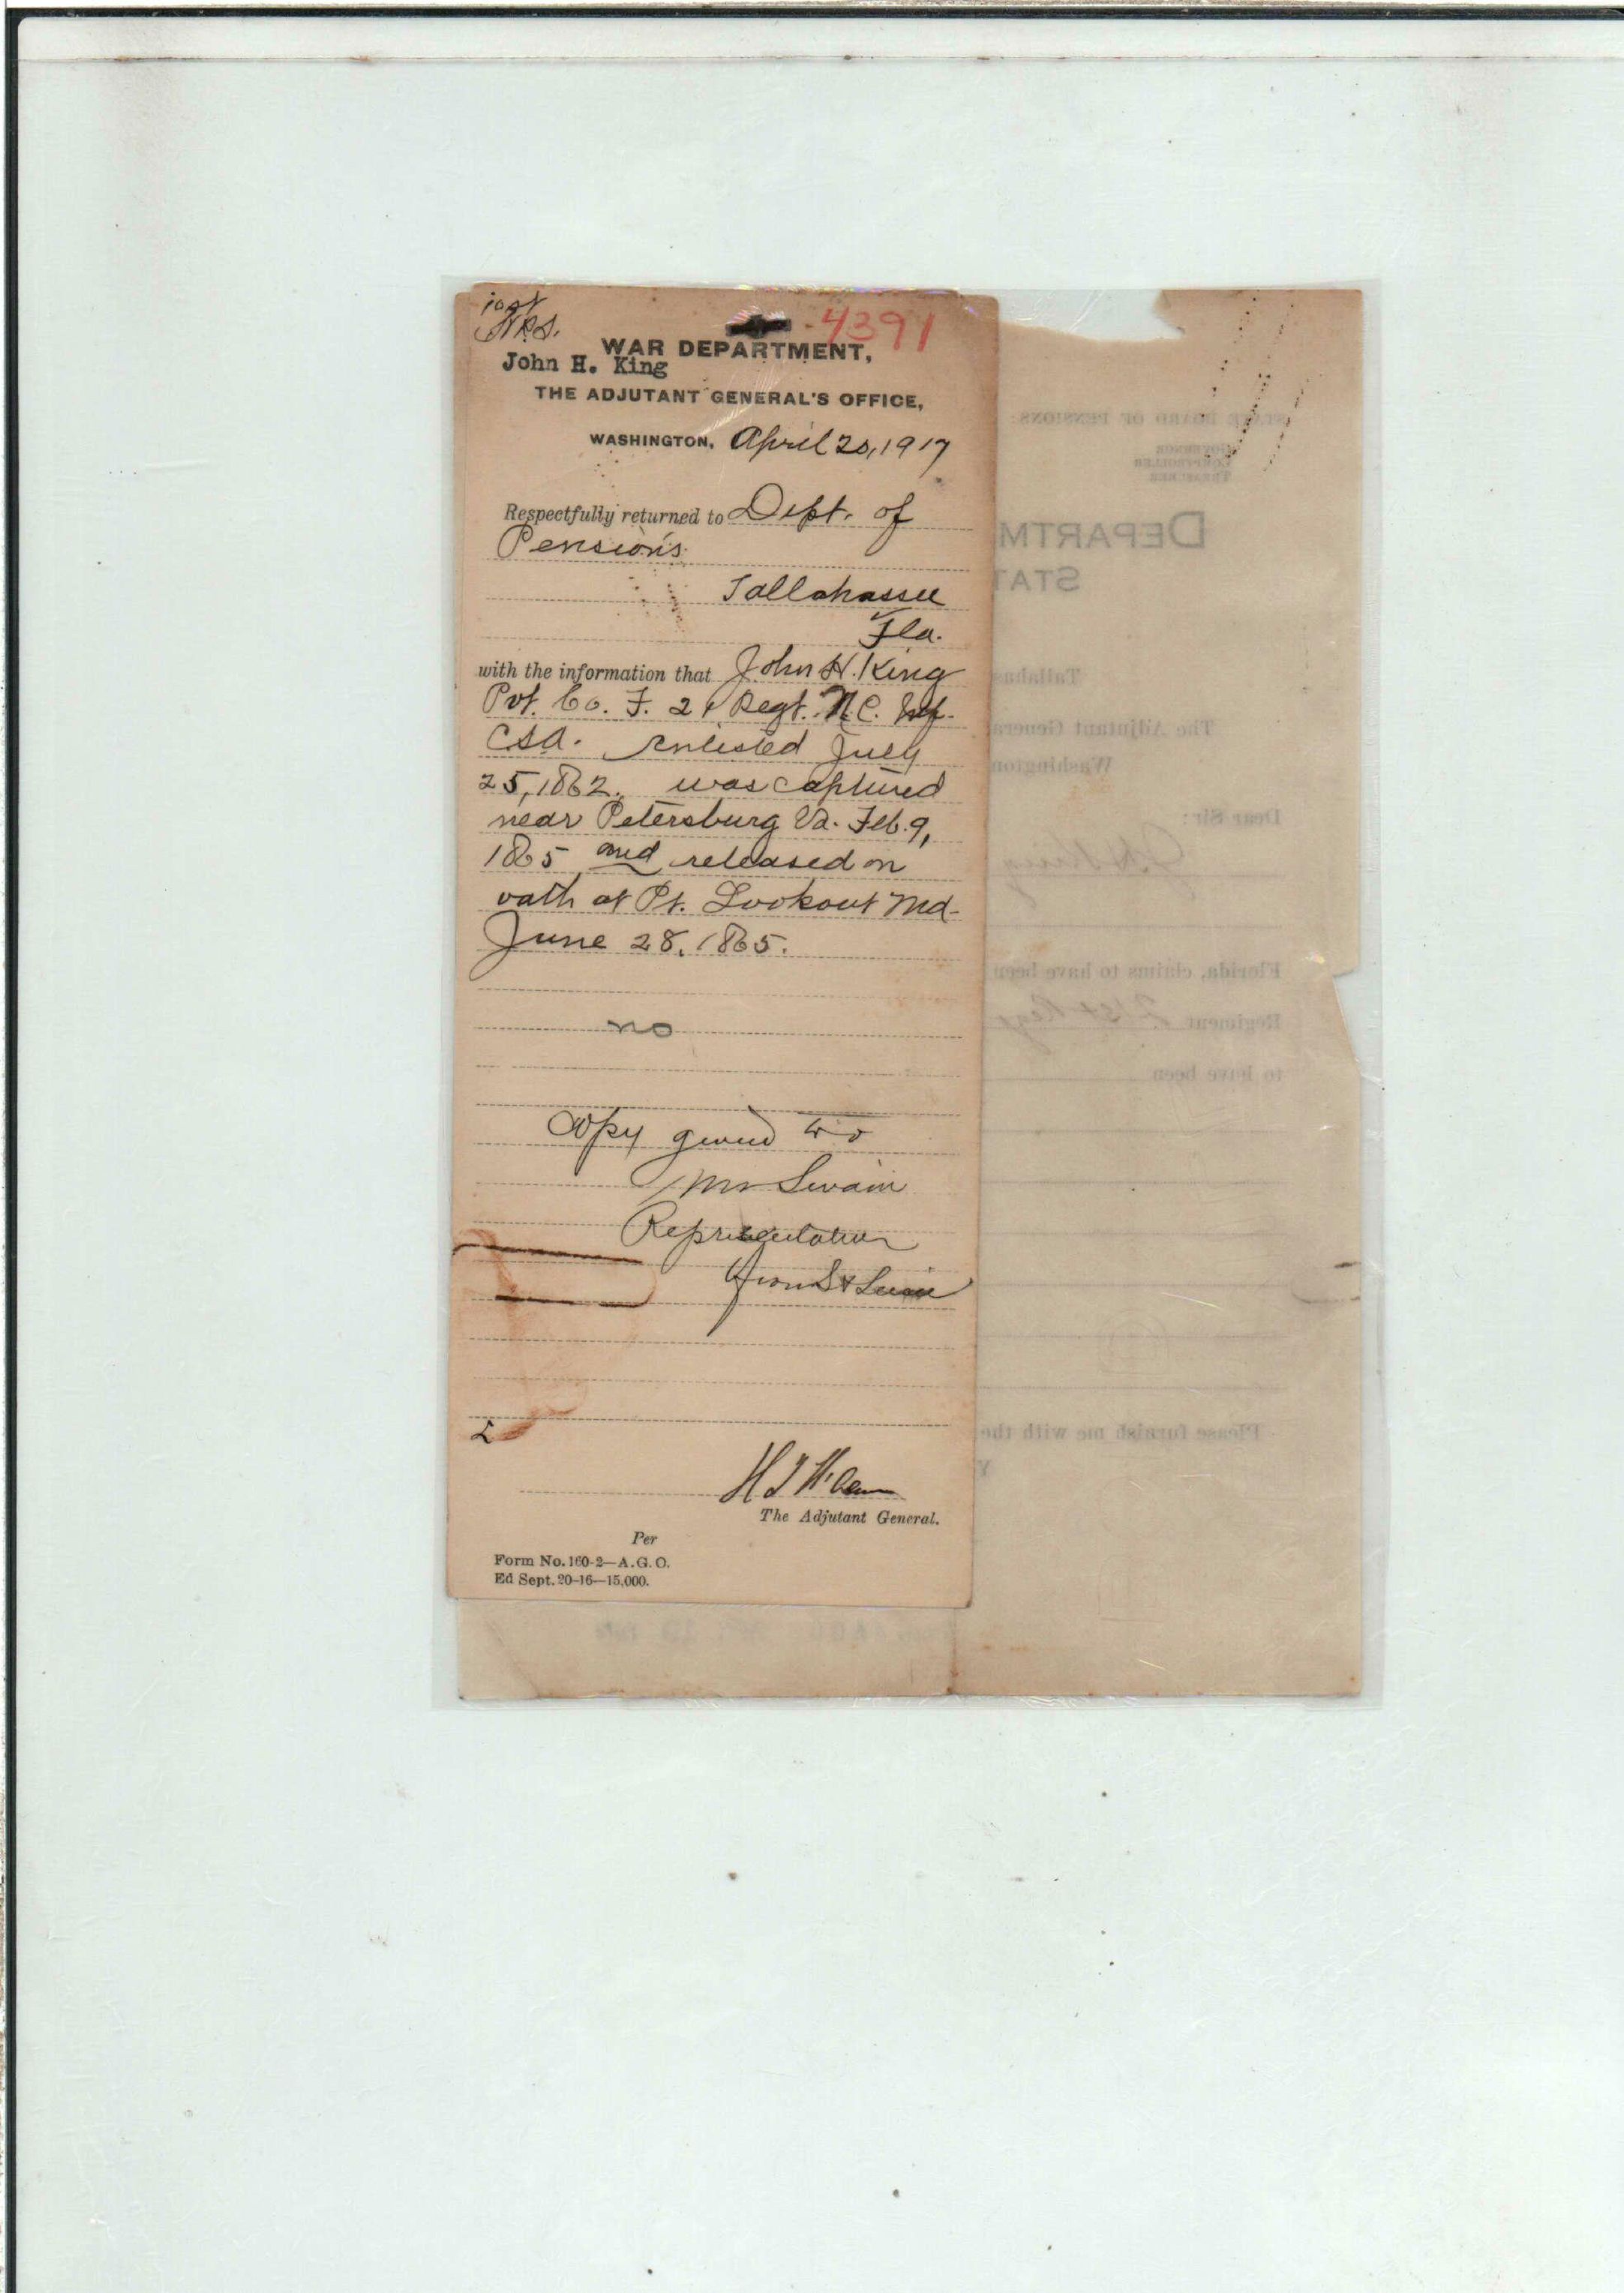 4391
WAR DEPARTMENT,
John H. King
THE ADJUTANT GENERAL'S OFFICE,
WASHINGTON, April 20, 1917
Respectfully returned to Dept. of
Pensions
Tallahassee
Fla.
with the information that John H. King
Pvt. Co. F. 21 Regt. N.C. Inf.
CSA. enlisted July
25, 1862, was captured
near Petersburg Va. Feb. 9,
1865 and released on
oath at Pt. Lookout Md.
June 28, 1865.
no
Copy given to
Mr Swain
Representative
from St Lucie
The Adjutant General.
Per
Form No. 160-2—A.G.O.
Ed Sept. 20-16—15,000.
STATE BOARD OF PENSIONS:
GOVERNOR
COMPTROLLER
TREASURER
DEPARTM
STAT
Tallahas
The Adjutant Genera
Washington
Dear Sir:
J. H. King
Florida, claims to have been
Regiment 21st Reg
to have been
Please furnish me with the
Y